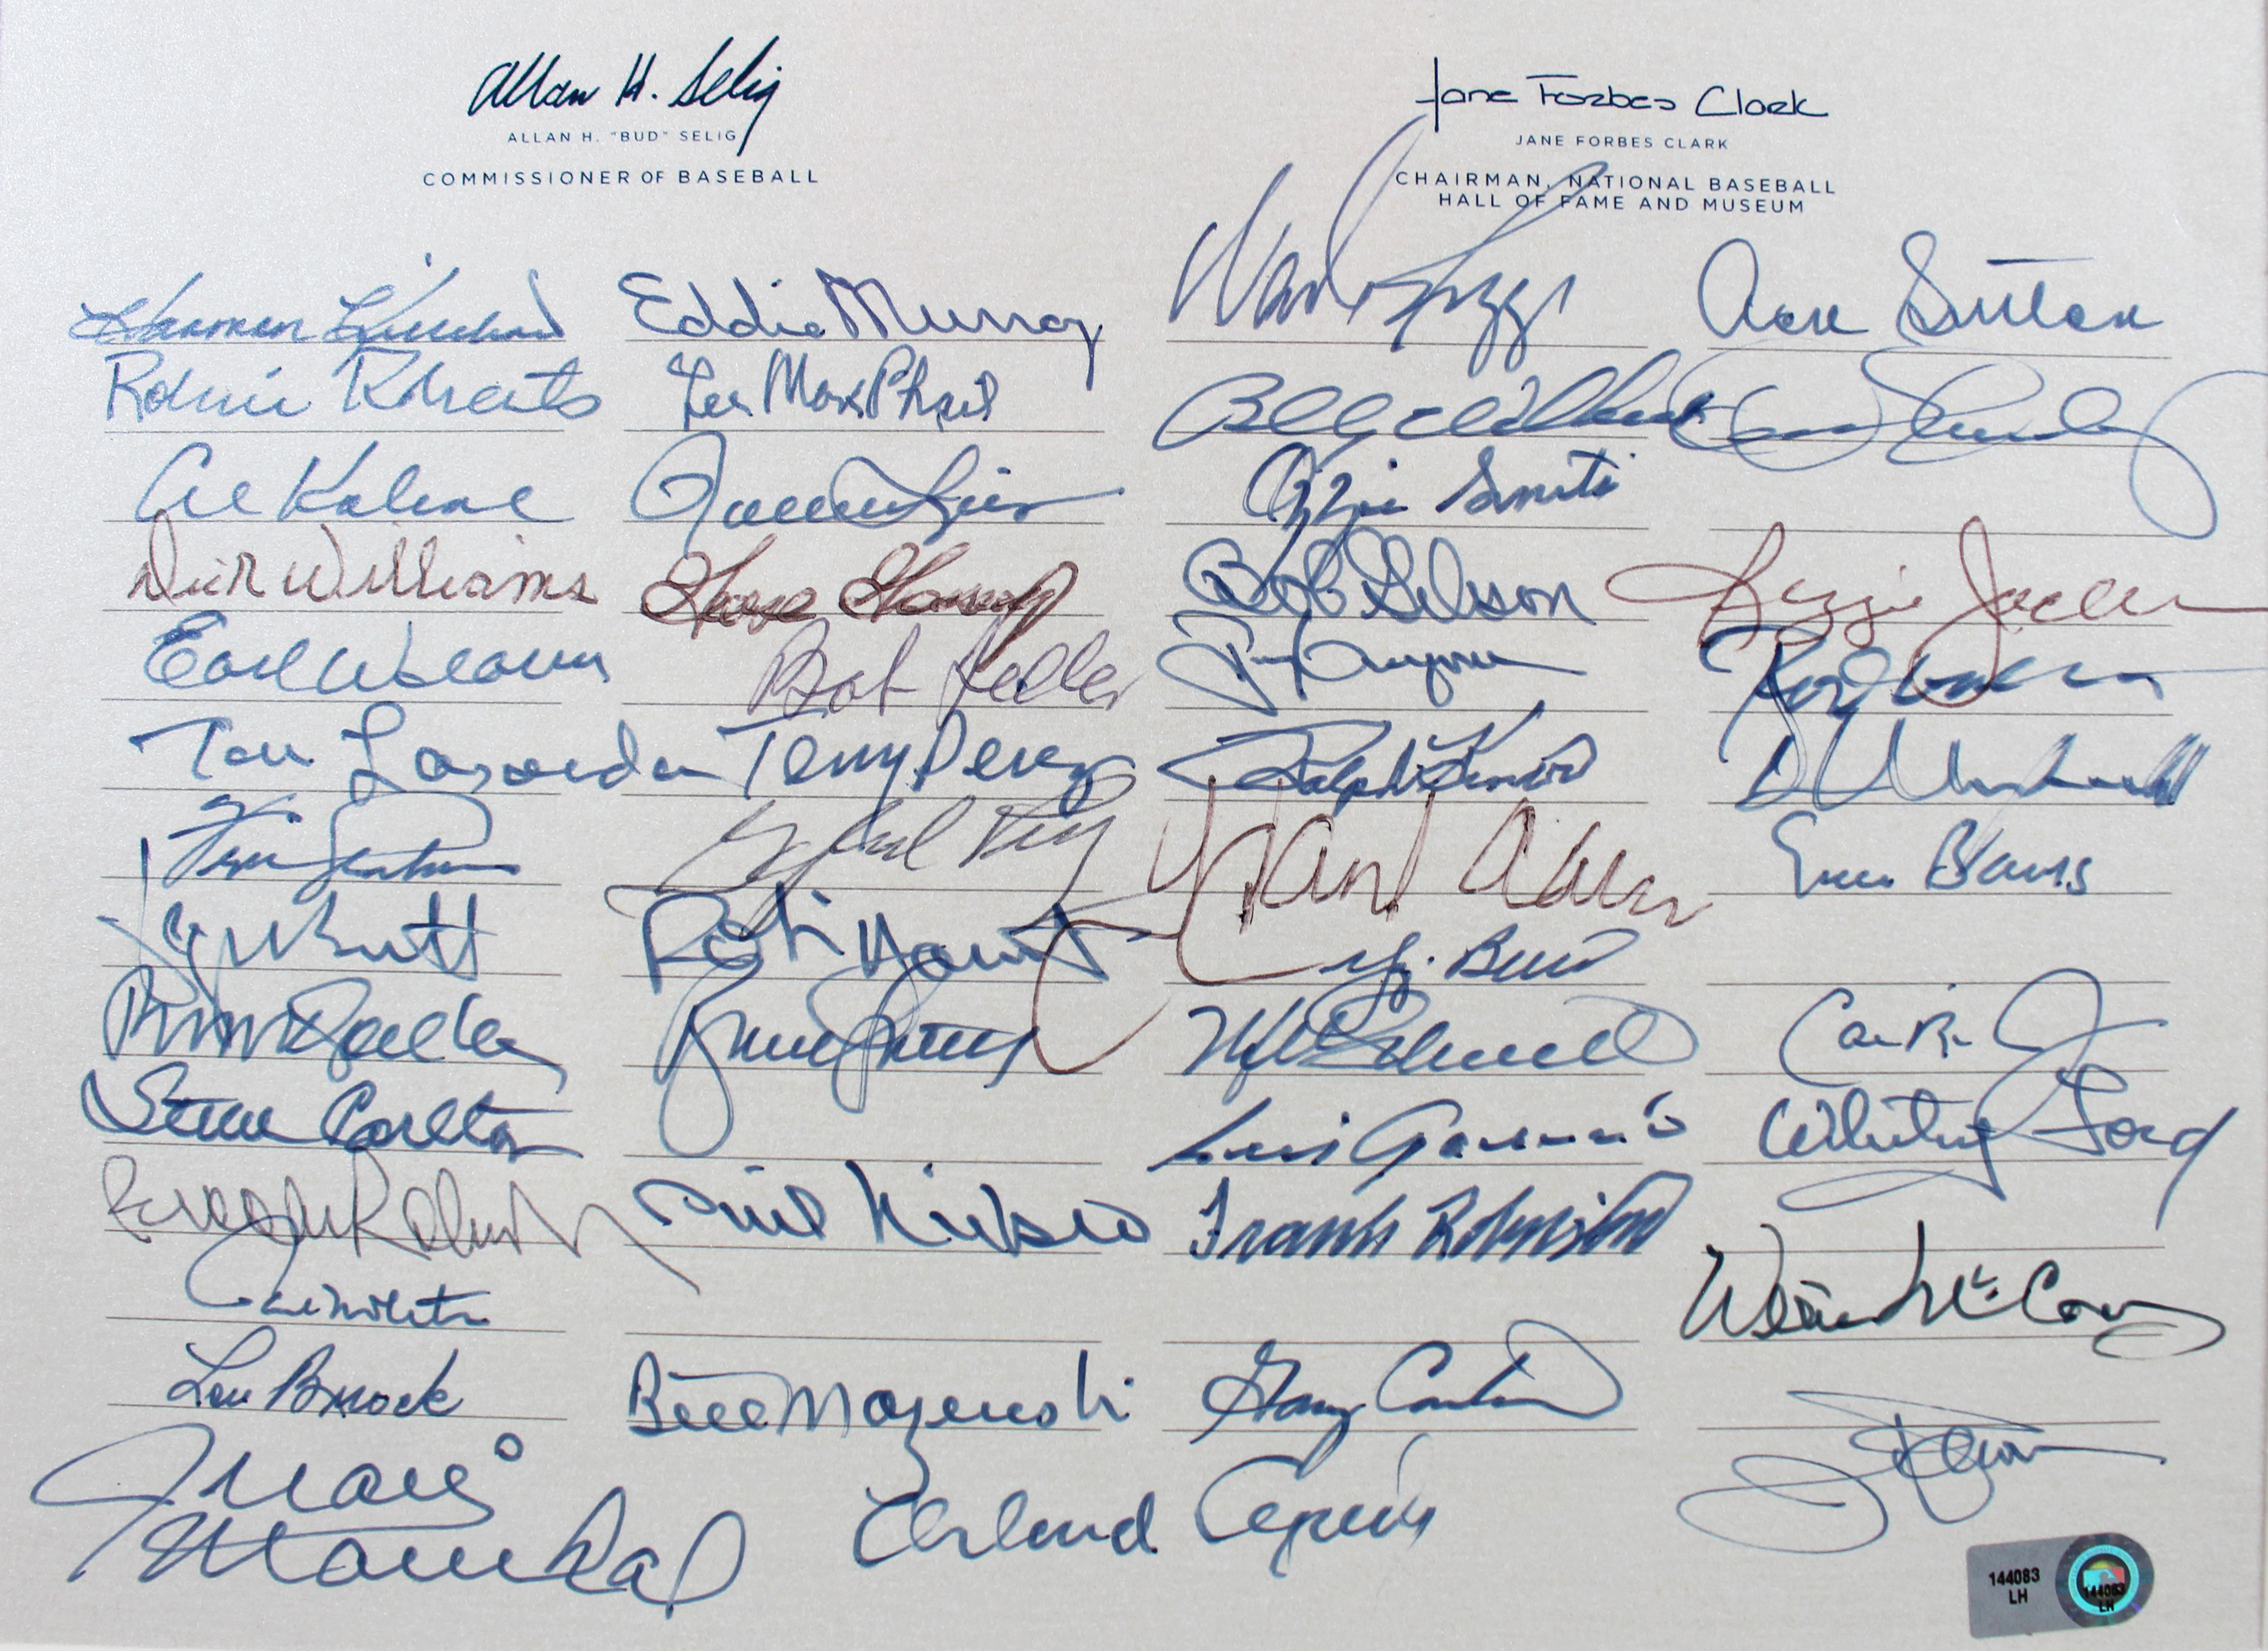 Allan H. Selig
ALLAN H. "BUD" SELIG
COMMISSIONER OF BASEBALL
Jane Forbes Clark
JANE FORBES CLARK
CHAIRMAN, NATIONAL BASEBALL
HALL OF FAME AND MUSEUM
Harmon Killebrew
Robin Roberts
Al Kaline
Dick Williams
Earl Weaver
Tom Lasorda
Tom Seaver
George Brett
Steve Carlton
Brooks Robinson
Lou Brock
Juan
Marichal
Eddie Murray
Lee MacPhail
Goose Gossage
Bob Feller
Tony Perez
Gaylord Perry
Robin Yount
Bruce Sutter
Phil Niekro
Bill Mazeroski
Orlando Cepeda
Wade Boggs
Billy Williams
Ozzie Smith
Bob Gibson
Ralph Kiner
Hank Aaron
Yogi Berra
Luis Aparicio
Frank Robinson
Gary Carter
Don Sutton
Reggie Jackson
Ernie Banks
Whitey Ford
Willie McCovey
144083
LH
144083
LH